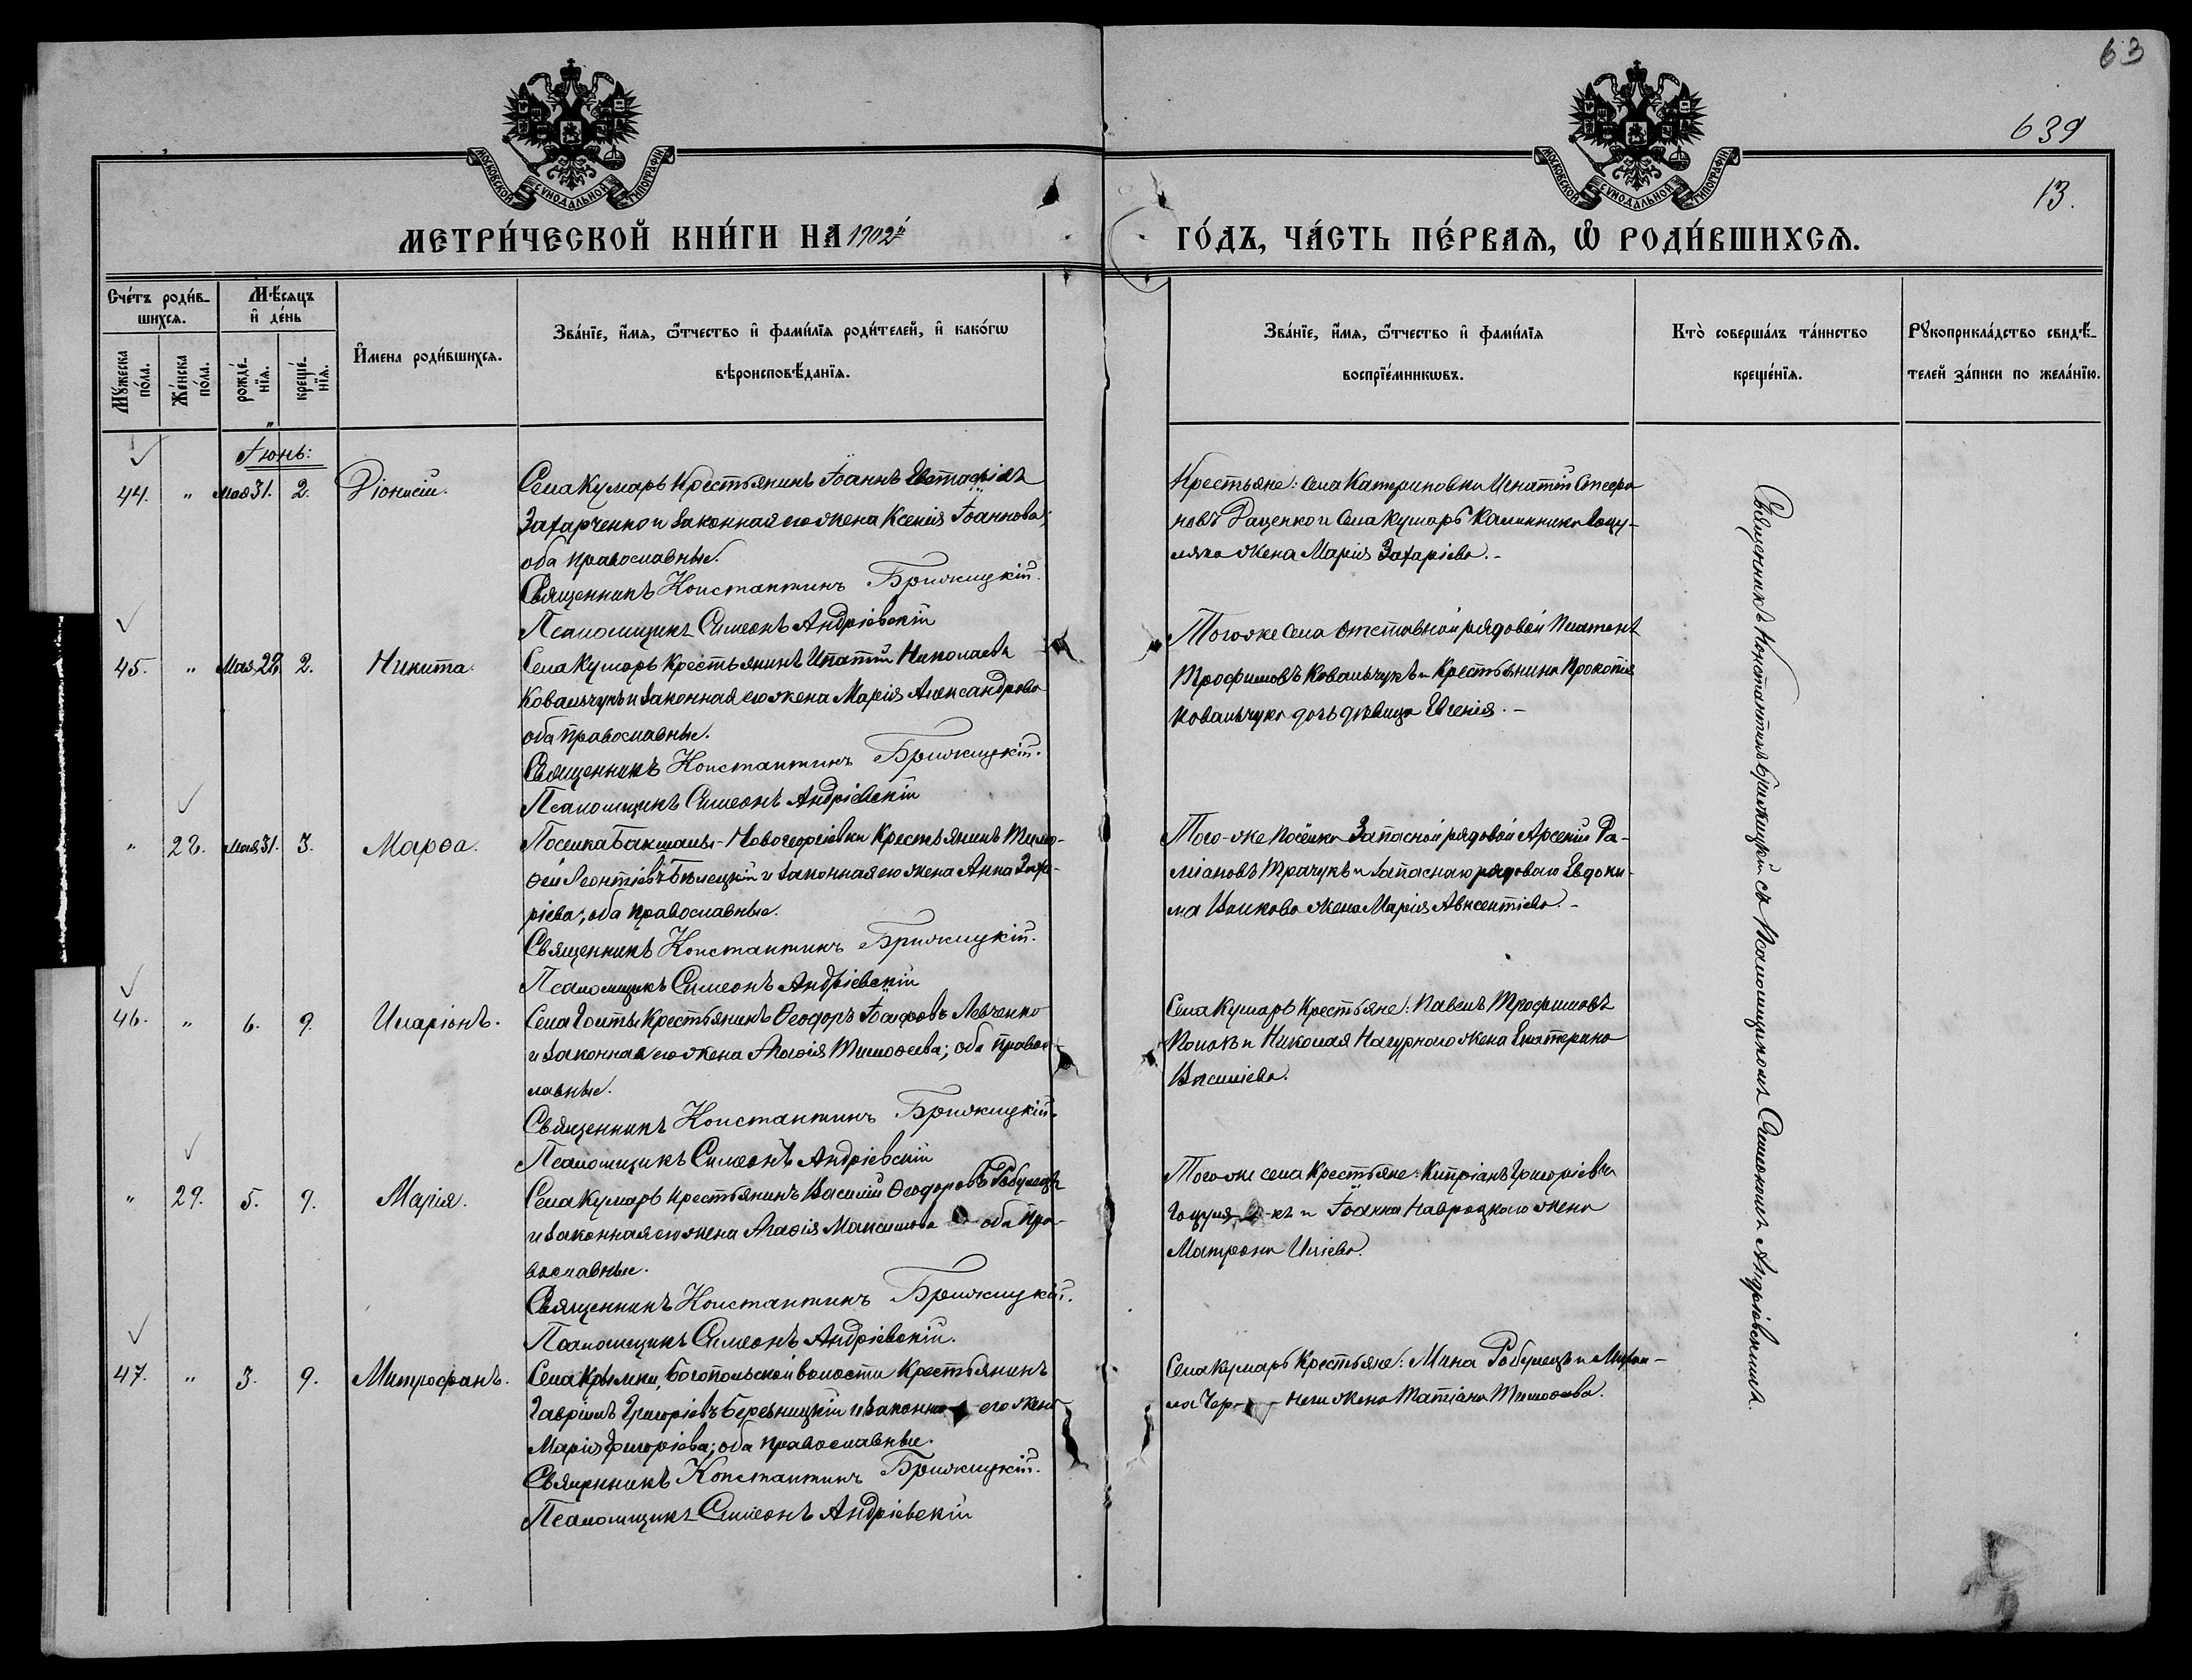 63
639
13.
МОСКОВСКОЙ СѴНОДАЛЬНОЙ ТИПОГРАФІИ
МОСКОВСКОЙ СѴНОДАЛЬНОЙ ТИПОГРАФІИ
МЕТРИ́ЧЕСКОЙ КНИ́ГИ НА 1902й
ГО́ДЪ, ЧА́СТЬ ПЕ́РВАЯ, Ѡ҆ РОДИ́ВШИХСЯ.
Счетъ роди́в-
шихся.
Мꙋ́жеска по́ла.
Же́нска по́ла.
Мѣ́сяцъ и҆ де́нь
рожде́-нїя.
креще́-нїя.
И҆мена роди́вшихся.
Зва́нїе, и҆́мя, ѻ҆́тчество и҆ фами́лїя роди́телей, и҆ како́гѡ
вѣроисповѣ́данїя.
Зва́нїе, и҆́мя, ѻ҆́тчество и҆ фами́лїя
воспрїе́мникѡвъ.
Кто̀ соверша́лъ та́инство
креще́нїя.
Рꙋкоприкла́дство свидѣ́-
телей за́писи по жела́нїю.
Іюнь:
44. " Мая 31. 2. Діонисій.
Села Кумаръ Крестьянинъ Іоаннъ Евстафіевъ
Захарченко и законная его жена Ксенія Іоаннова;
оба православные.
Священникъ Константинъ Брижицкій.
Псаломщикъ Симеонъ Андріевскій
Крестьяне: села Катериновки Игнатій Стефа-
новъ Даценко и села Кумаръ Калинника Гоцу-
ляка жена Марія Захаріева.-
45. " Мая 28. 2. Никита.
Села Кумаръ Крестьянинъ Ипатій Николаевъ
Ковальчукъ и законная его жена Марія Александрова
оба православные.
Священникъ Константинъ Брижицкій.
Псаломщикъ Симеонъ Андріевскій
Того же села отставной рядовой Платонъ
Трофимовъ Ковальчукъ и Крестьянина Прокопія
Ковальчука дочь дѣвица Евгенія.-
" 28. Мая 31. 3. Марѳа.
Поселка Бакшалы-Новогеоргіевки Крестьянинъ Тимо-
ѳей Леонтіевъ Бѣлецкій и законная его жена Анна Заха-
ріева; оба православные.
Священникъ Константинъ Брижицкій.
Псаломщикъ Симеонъ Андріевскій
Того-же посёлка Запасной рядовой Арсеній Да-
міановъ Трачукъ и запаснаго рядоваго Евдоки-
ма Волкова жена Марія Авксентіева.-
46. " 6. 9. Иларіонъ.
Села Гопты Крестьянинъ Ѳеодоръ Іосифовъ Левченко
и законная его жена Агаѳія Тимоѳеева; оба правос-
лавные.
Священникъ Константинъ Брижицкій.
Псаломщикъ Симеонъ Андріевскій
Села Кумаръ Крестьяне: Павелъ Трофимовъ
Попокъ и Николая Нагурнаго жена Екатерина
Василіева.
" 29. 5. 9. Марія.
Села Кумаръ Крестьянинъ Василій Ѳеодоровъ Робулецъ
и законная его жена Агаѳія Максимова оба пра-
вославные.
Священникъ Константинъ Брижицкій.
Псаломщикъ Симеонъ Андріевскій.
Того же села Крестьяне: Кипріанъ Григоріевъ
Гоцуля-къ и Іоанна Навроцкаго жена
Матрона Иліева.
47. " 3. 9. Митрофанъ.
Села Крымки, Богопольской волости Крестьянинъ
Гавріилъ Григоріевъ Березницкій и законная его жена
Марія Григоріева; оба православные.
Священникъ Константинъ Брижицкій.
Псаломщикъ Симеонъ Андріевскій
Села Кумаръ Крестьяне: Мина Робулецъ и Михаи-
ла жена Татіана Тимоѳеева.
Священникъ Константинъ Брижицкій съ Псаломщикомъ Симеономъ Андріевскимъ.